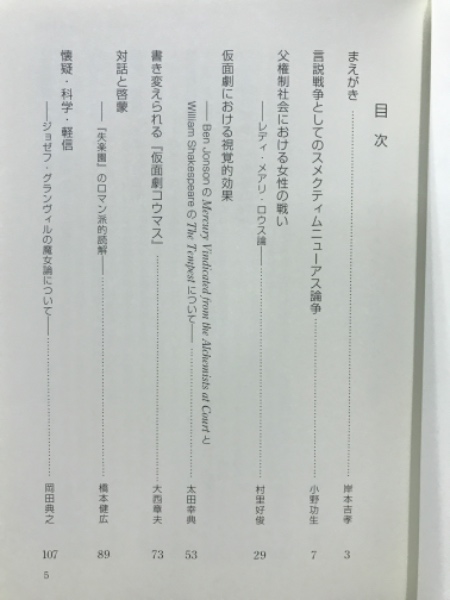 目次
まえがき……岸本吉孝 3
言説戦争としてのスメクティムニューアス論争……小野功生 7
父権制社会における女性の戦い
——レディ・メアリ・ロウス論——……村里好俊 29
仮面劇における視覚的効果
——Ben JonsonのMercury Vindicated from the Alchemists at Courtと
William ShakespeareのThe Tempestについて——……太田幸典 53
書き変えられる『仮面劇コウマス』……大西章夫 73
対話と啓蒙
——『失楽園』のロマン派的読解——……橋本健広 89
懐疑・科学・軽信
——ジョゼフ・グランヴィルの魔女論について——……岡田典之 107
5